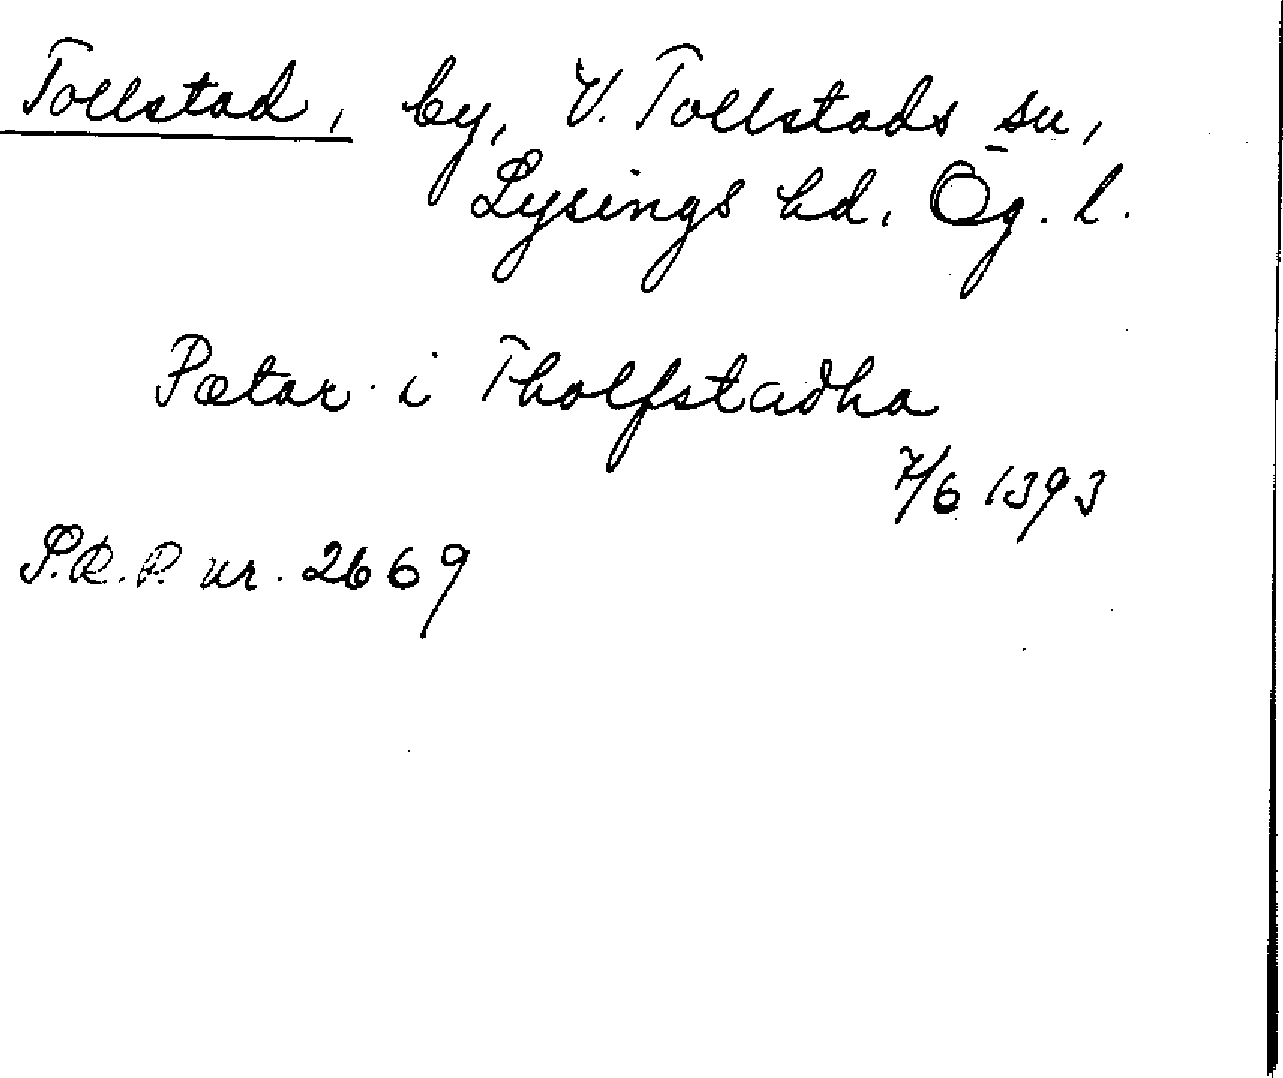 Tollstad, by, V. Tollstads sn,
Lysings hd. Ög. l.
Pætar i Tholfstadha
7/6 1393
P.R.P. nr. 2669